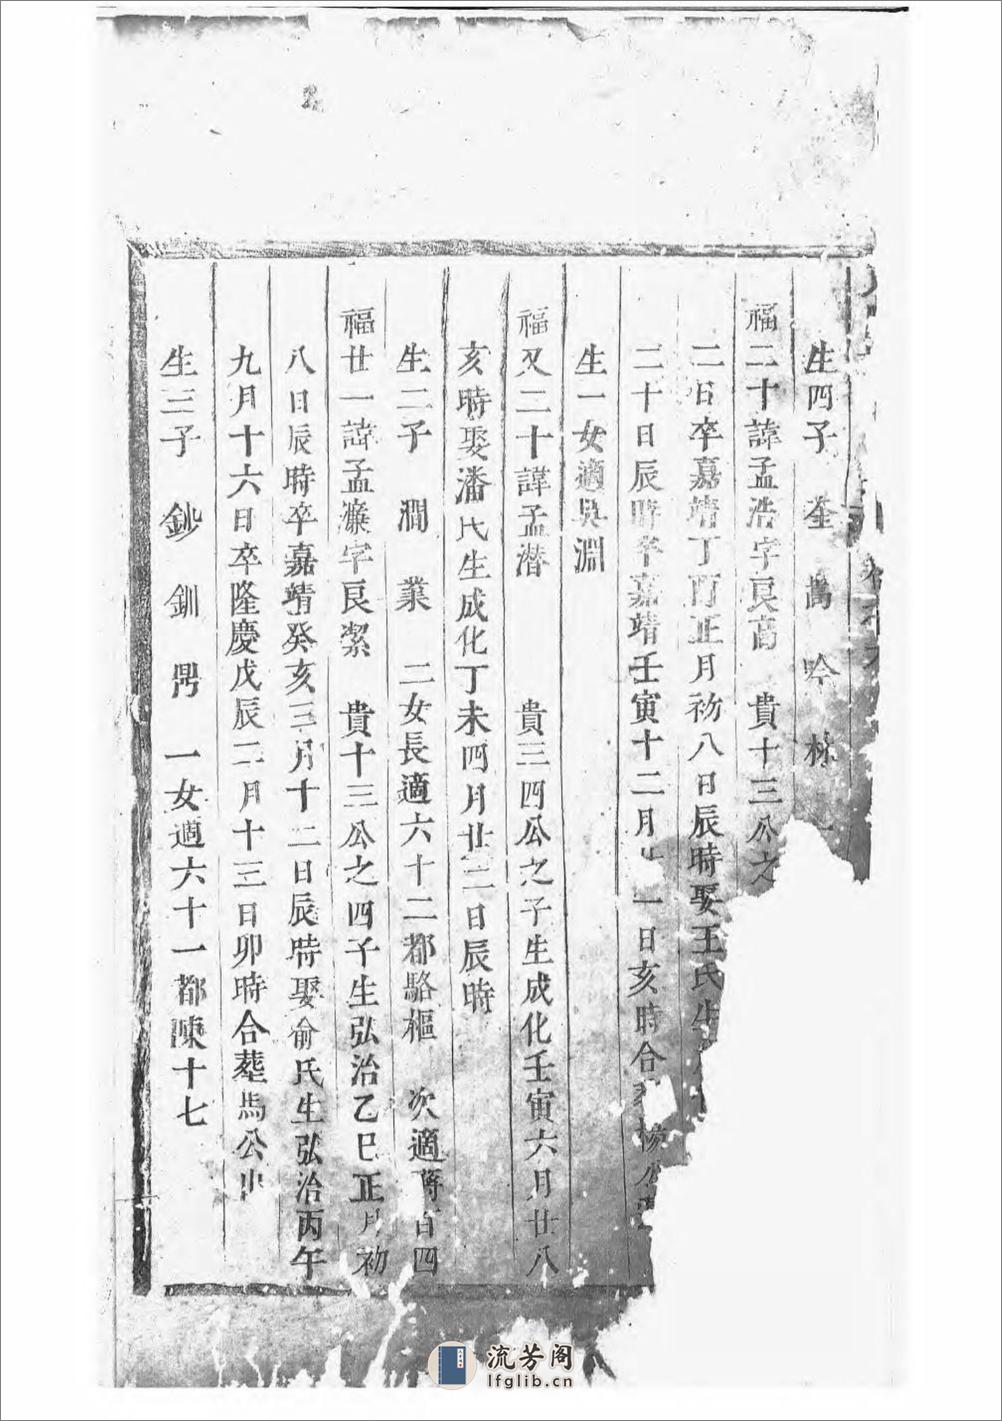 生四子 荃 萬 吟 林 一
福二十諱孟浩字良高 貴十三公之
二日卒嘉靖丁酉正月初八日辰時娶王氏生
二十日辰時卒嘉靖壬寅十二月廿一日亥時合葬
生一女適吳淵
福又二十諱孟潜 貴三四公之子生成化壬寅六月廿八
亥時娶潘氏生成化丁未四月廿三日辰時
生二子 澗 業 二女長適六十二都駱樞 次適 百四
福廿一諱孟濂字良潔 貴十三公之四子生弘治乙巳正月初
八日辰時卒嘉靖癸亥三月十二日辰時娶俞氏生弘治丙午
九月十六日卒隆慶戊辰二月十三日卯時合葬馬公山
生三子 鈔 釧 𫔍 一女適六十一都陳十七
流芳阁
lfglib.cn